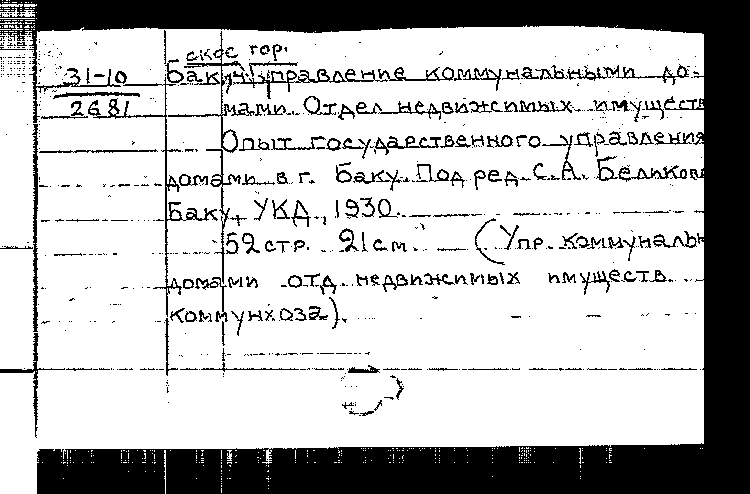 гор.
31-10 Баку, управление коммунальными до-
2681 мами. Отдел недвижимых имуществ
Опыт государственного управления
домами в г. Баку. Под ред. С.А. Беликова
Баку, УКД, 1930.
52 стр. 21 см. (Упр. коммунальн
домами отд. недвижимых имуществ
коммунхоза).